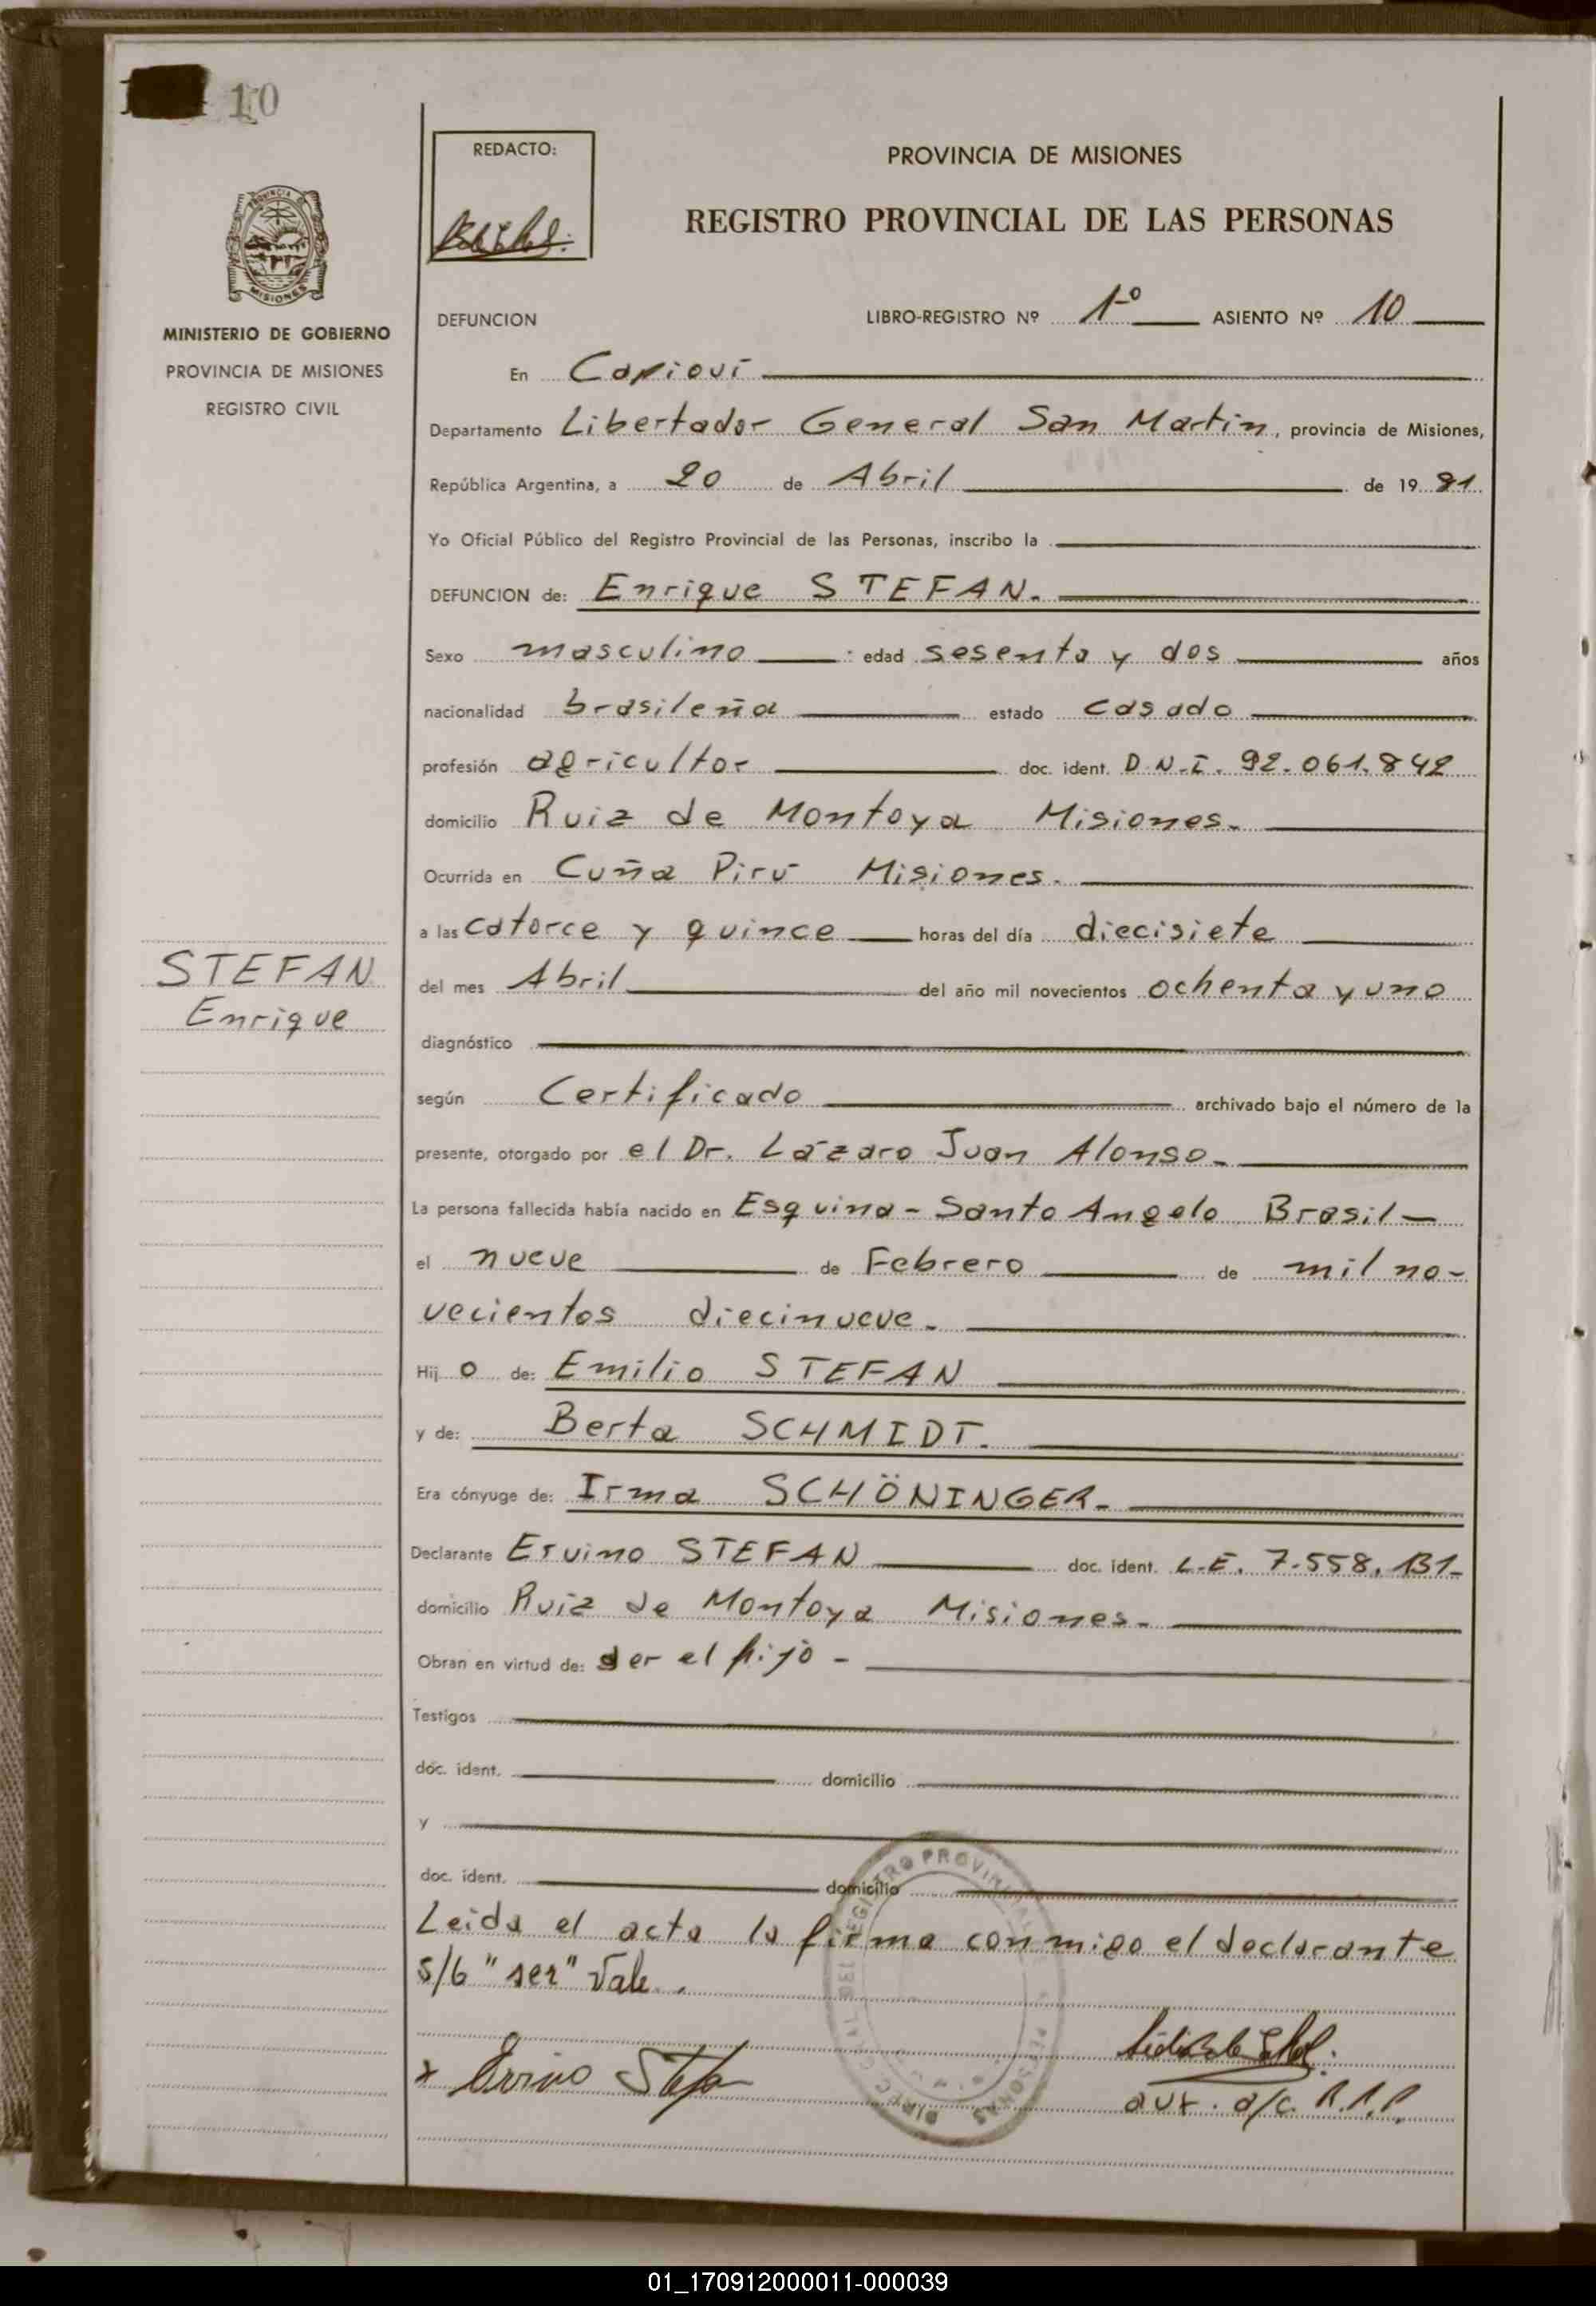 10
REDACTO:
PROVINCIA DE MISIONES
REGISTRO PROVINCIAL DE LAS PERSONAS
MISIONES
MINISTERIO DE GOBIERNO
PROVINCIA DE MISIONES
REGISTRO CIVIL
DEFUNCION LIBRO-REGISTRO Nº 1º ASIENTO Nº 10
En Capioví
Departamento Libertador General San Martin, provincia de Misiones,
República Argentina, a 20 de Abril de 19 81
Yo Oficial Público del Registro Provincial de las Personas, inscribo la
DEFUNCION de: Enrique STEFAN.
Sexo masculino : edad sesenta y dos años
nacionalidad brasileña estado casado
profesión agricultor doc. ident. D.N.I. 92.061.842
domicilio Ruiz de Montoya Misiones.
Ocurrida en Cuña Pirú Misiones.
a las catorce y quince horas del día diecisiete
STEFAN
Enrique
del mes Abril del año mil novecientos ochenta y uno
diagnóstico
según Certificado archivado bajo el número de la
presente, otorgado por el Dr. Lázaro Juan Alonso-
La persona fallecida había nacido en Esquina - Santo Angelo Brasil-
el nueve de Febrero de mil no-
vecientos diecinueve.
Hij o de: Emilio STEFAN
y de: Berta SCHMIDT.
Era cónyuge de: Irma SCHÖNINGER-
Declarante Ervino STEFAN doc. ident. L.E. 7.558.131-
domicilio Ruiz de Montoya Misiones-
Obran en virtud de: ser el hijo -
Testigos
doc. ident. domicilio
y
doc. ident. domicilio
Leida el acta la firma conmigo el declarante
s/b "ser" Vale.
x Ervino Stefan
aux. a/c. R.P.P.
01_170912000011-000039